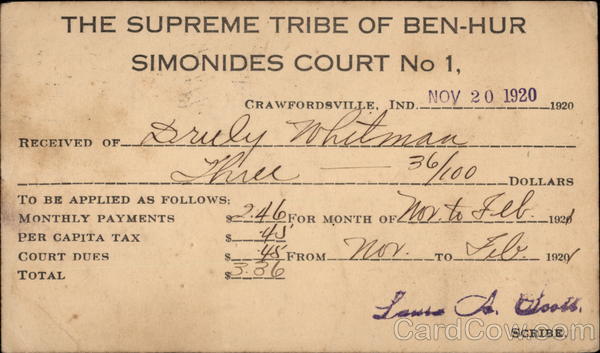 THE SUPREME TRIBE OF BEN-HUR
SIMONIDES COURT No 1,
CRAWFORDSVILLE, IND. NOV 20 1920 1920
RECEIVED OF Whitman
Three — 36/100 DOLLARS
TO BE APPLIED AS FOLLOWS:
MONTHLY PAYMENTS $2.46 FOR MONTH OF Nov. to Feb. 1921
PER CAPITA TAX $ 45
COURT DUES $ 45 FROM Nov. TO Feb. 1921
TOTAL $3.36
Laura A.
SCRIBE.
CardCow.com